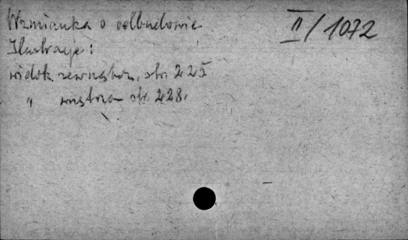 Wzmianka o odbudowie II/1072
Ilustracje:
widok zewnątrz, str. 225
" wnętrza str. 228.